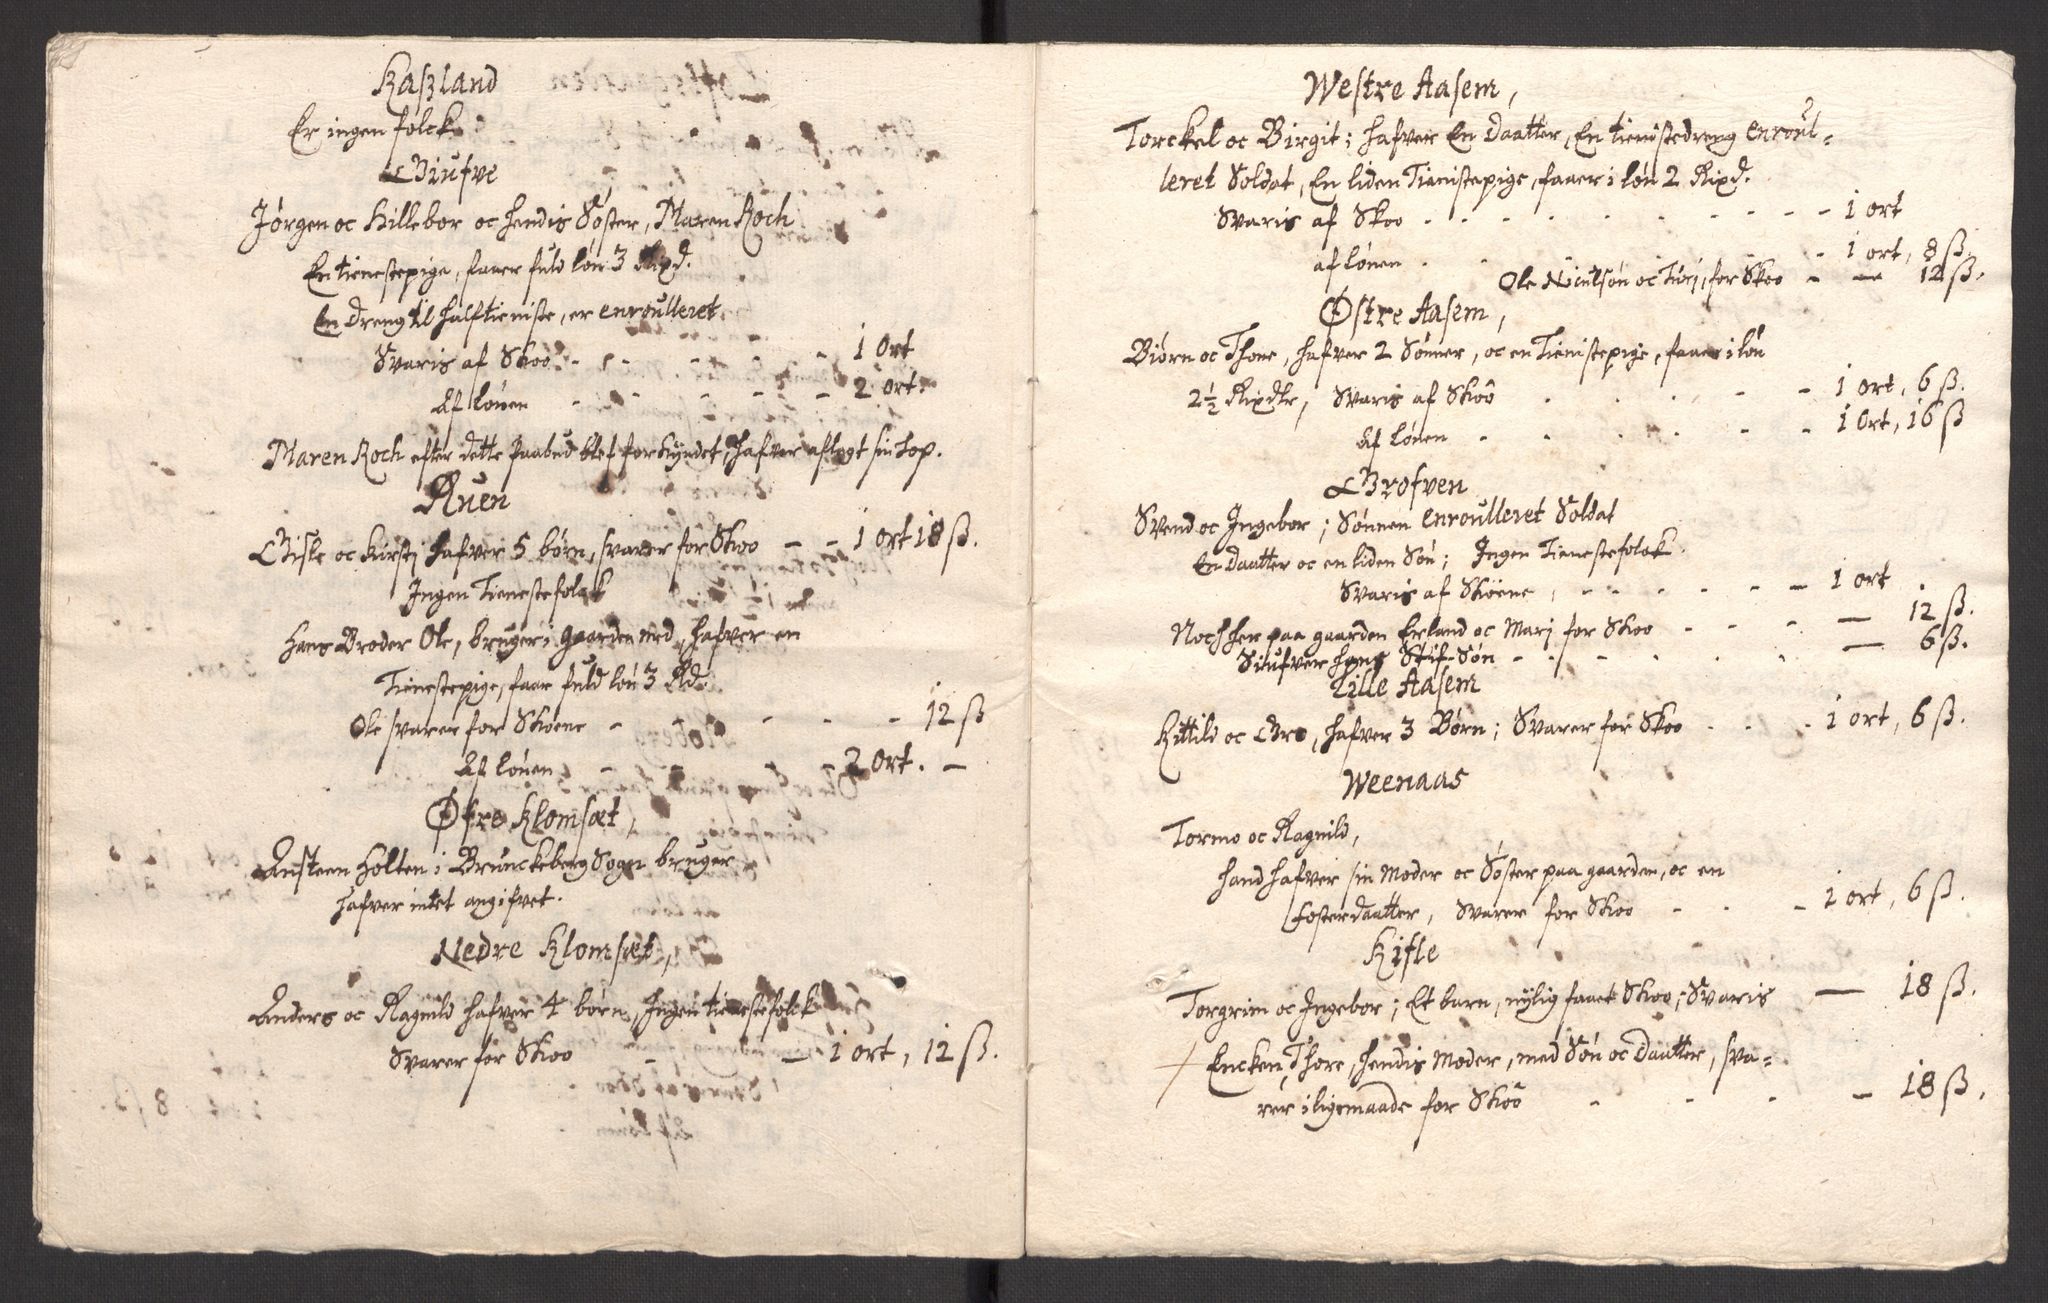 Kaszland
Er ingen folck
Giufve
Jørgen oc Hillebor oc hendis Søster, Maren Koch
En tienestepige, faaer fuld løn 3 Rixd.
En dreng til half tieniste, er enroulleret
Svaris af Skoo - - - - - 1 Ort
Af Lønen - - - - - 2 ort.
Maren Koch efter dette Paabud blef forkyndet, hafver aflagt sin Top.
Ruen
Gisle oc Kirstj hafver 5 børn, svarer for Skoo - - 1 ort 18 ß.
Ingen Tienestefolck
Hans Broder Ole, bruger i gaarden med, hafver en
Tienestepige, faar fuld løn 3 Rd.
Ole svarer for Skoene - - - - 12 ß
Af Lønen - - - - 2 Ort. -
Øfre Klomset,
Austeen Holten i Brunckeberg Sogn bruger
hafver intet angifvet.
Nedre Klomset,
Anders oc Ragnild hafver 4 børn, Ingen tienestefolck
Svarer for Skoo - - 1 ort, 12 ß.
Westre Aasem,
Torckel oc Birgit; hafver En Daatter, En tienistedreng enroul-
leret Soldat, En liden Tienistepige, faaer i løn 2 Rixd.
Svaris af Skoo - - - - - - - - - 1 ort
af Lønen - - - 1 ort, 8 ß.
Ole Nielsøn oc Turj, for Skoo - — 12 ß.
Østre Aasem,
Biørn oc Thone, hafver 2 Sønner, oc en Tienistepige, faaer i løn
2½ Rixdlr, Svaris af Skoo - - - - - 1 ort, 6 ß.
Af Lønen - - - - - - 1 Ort, 16 ß
Grofven
Svend oc Ingebor; Sønnen enroulleret Soldat
En Daatter oc en liden Søn; Ingen Tienestefolck
Svaris af Skoene, - - - - - - 1 ort
Noch her paa gaarden Erland oc Marj for Skoo - - - — 12 ß.
Siufver hans Stif-Søn - - - - - — 6 ß.
Lille Aasem
Kittild oc Gro, hafver 3 Børn; Svarer for Skoo - - - 1 ort, 6 ß.
Weenaas
Tormo oc Ragnild,
Hand hafver sin Moder oc Søster paa gaarden, oc en
Fosterdaatter, Svarer for Skoo - - - 1 ort, 6 ß.
Kifle
Torgrim oc Ingebor; Et barn, nylig faaet Skoo; Svaris — 18 ß.
Encken Thore, hendis Moder, med Søn oc Daatter, sva-
rer i ligemaade for Skoo - - - — 18 ß.